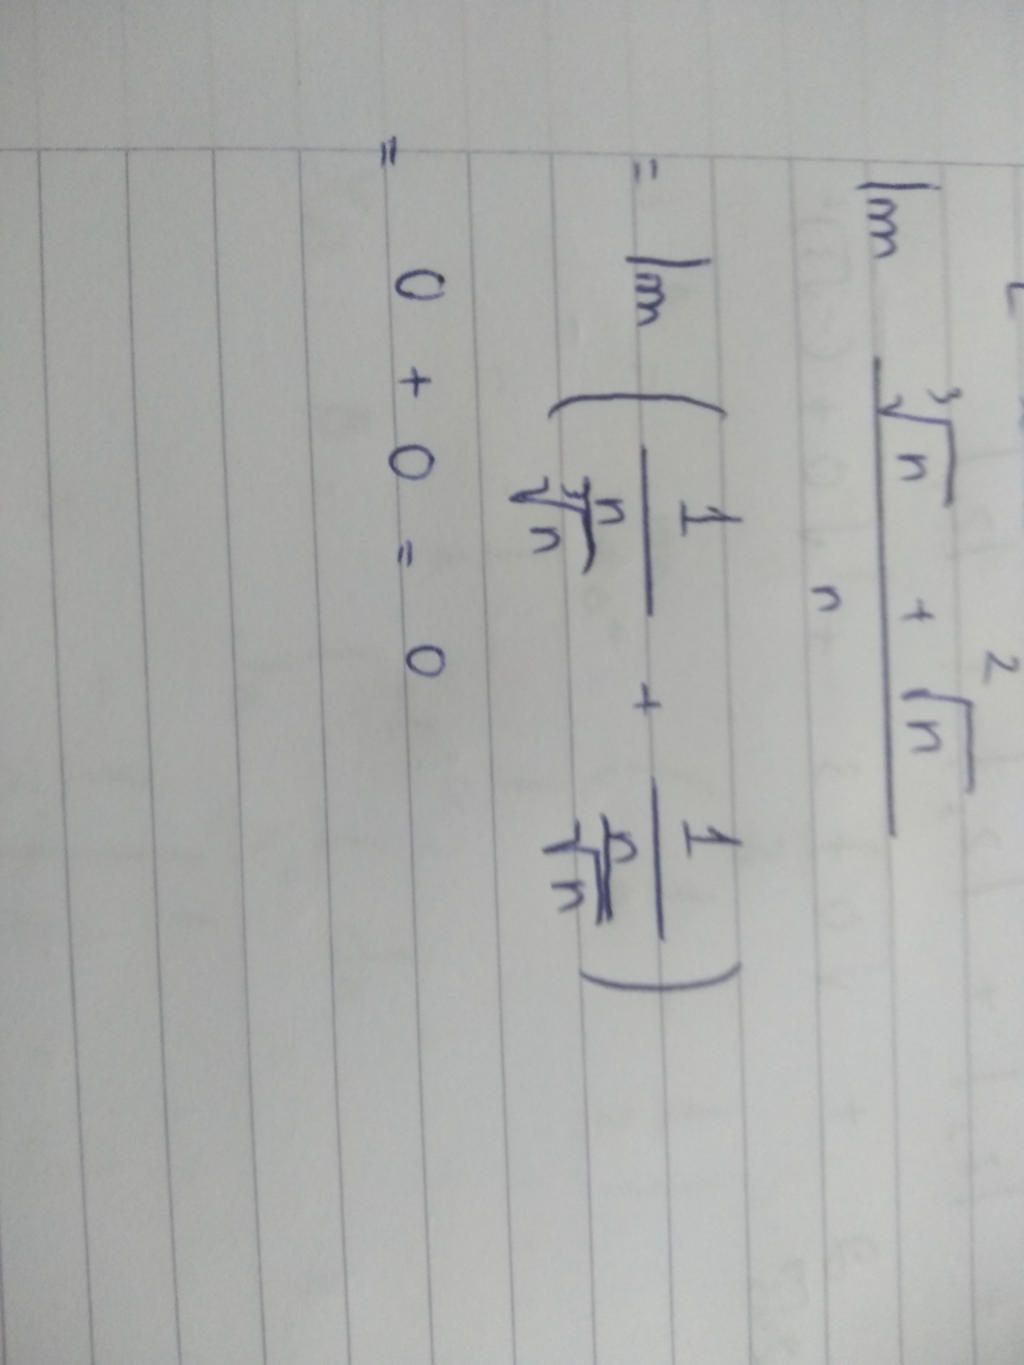 lm ³√n + √n / n
= lm ( 1 / (n / ³√n) + 1 / (n / √n) )
= 0 + 0 = 0